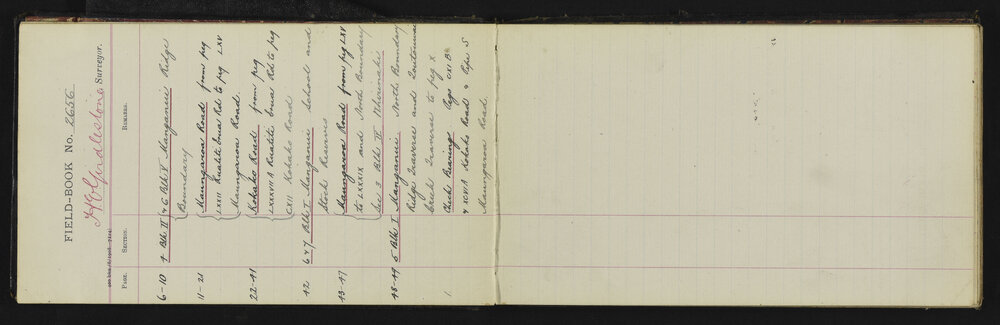 FIELD-BOOK No. 2656
H C Girdlestone Surveyor.
PAGE. SECTION. REMARKS.
6-10 4 Blk II & 6 Blk V Manganui Ridge
Boundary
11-21 Maunganoa Road from peg
LXXII Kuatiti branch Rd to peg LXV
Maunganoa Road.
22-41 Kohaho Road from peg
LXXXVII A Kuatiti branch Rd to peg
CXII Kohaho Road
42 6 & 7 Blk I Manganui School and
Stock Reserves
43-47 Maunganoa Road from peg LXV
to LXXXIX and North Boundary
Sec 3 Blk IV Whirinaki
48-49 5 Blk I Manganui. North Boundary
Ridge Traverse and
Creek Traverse to peg X
1. Check Bearing Pegs CXI B
& XCVIA Kohaho Road & Pegs 5
Maunganoa Road.